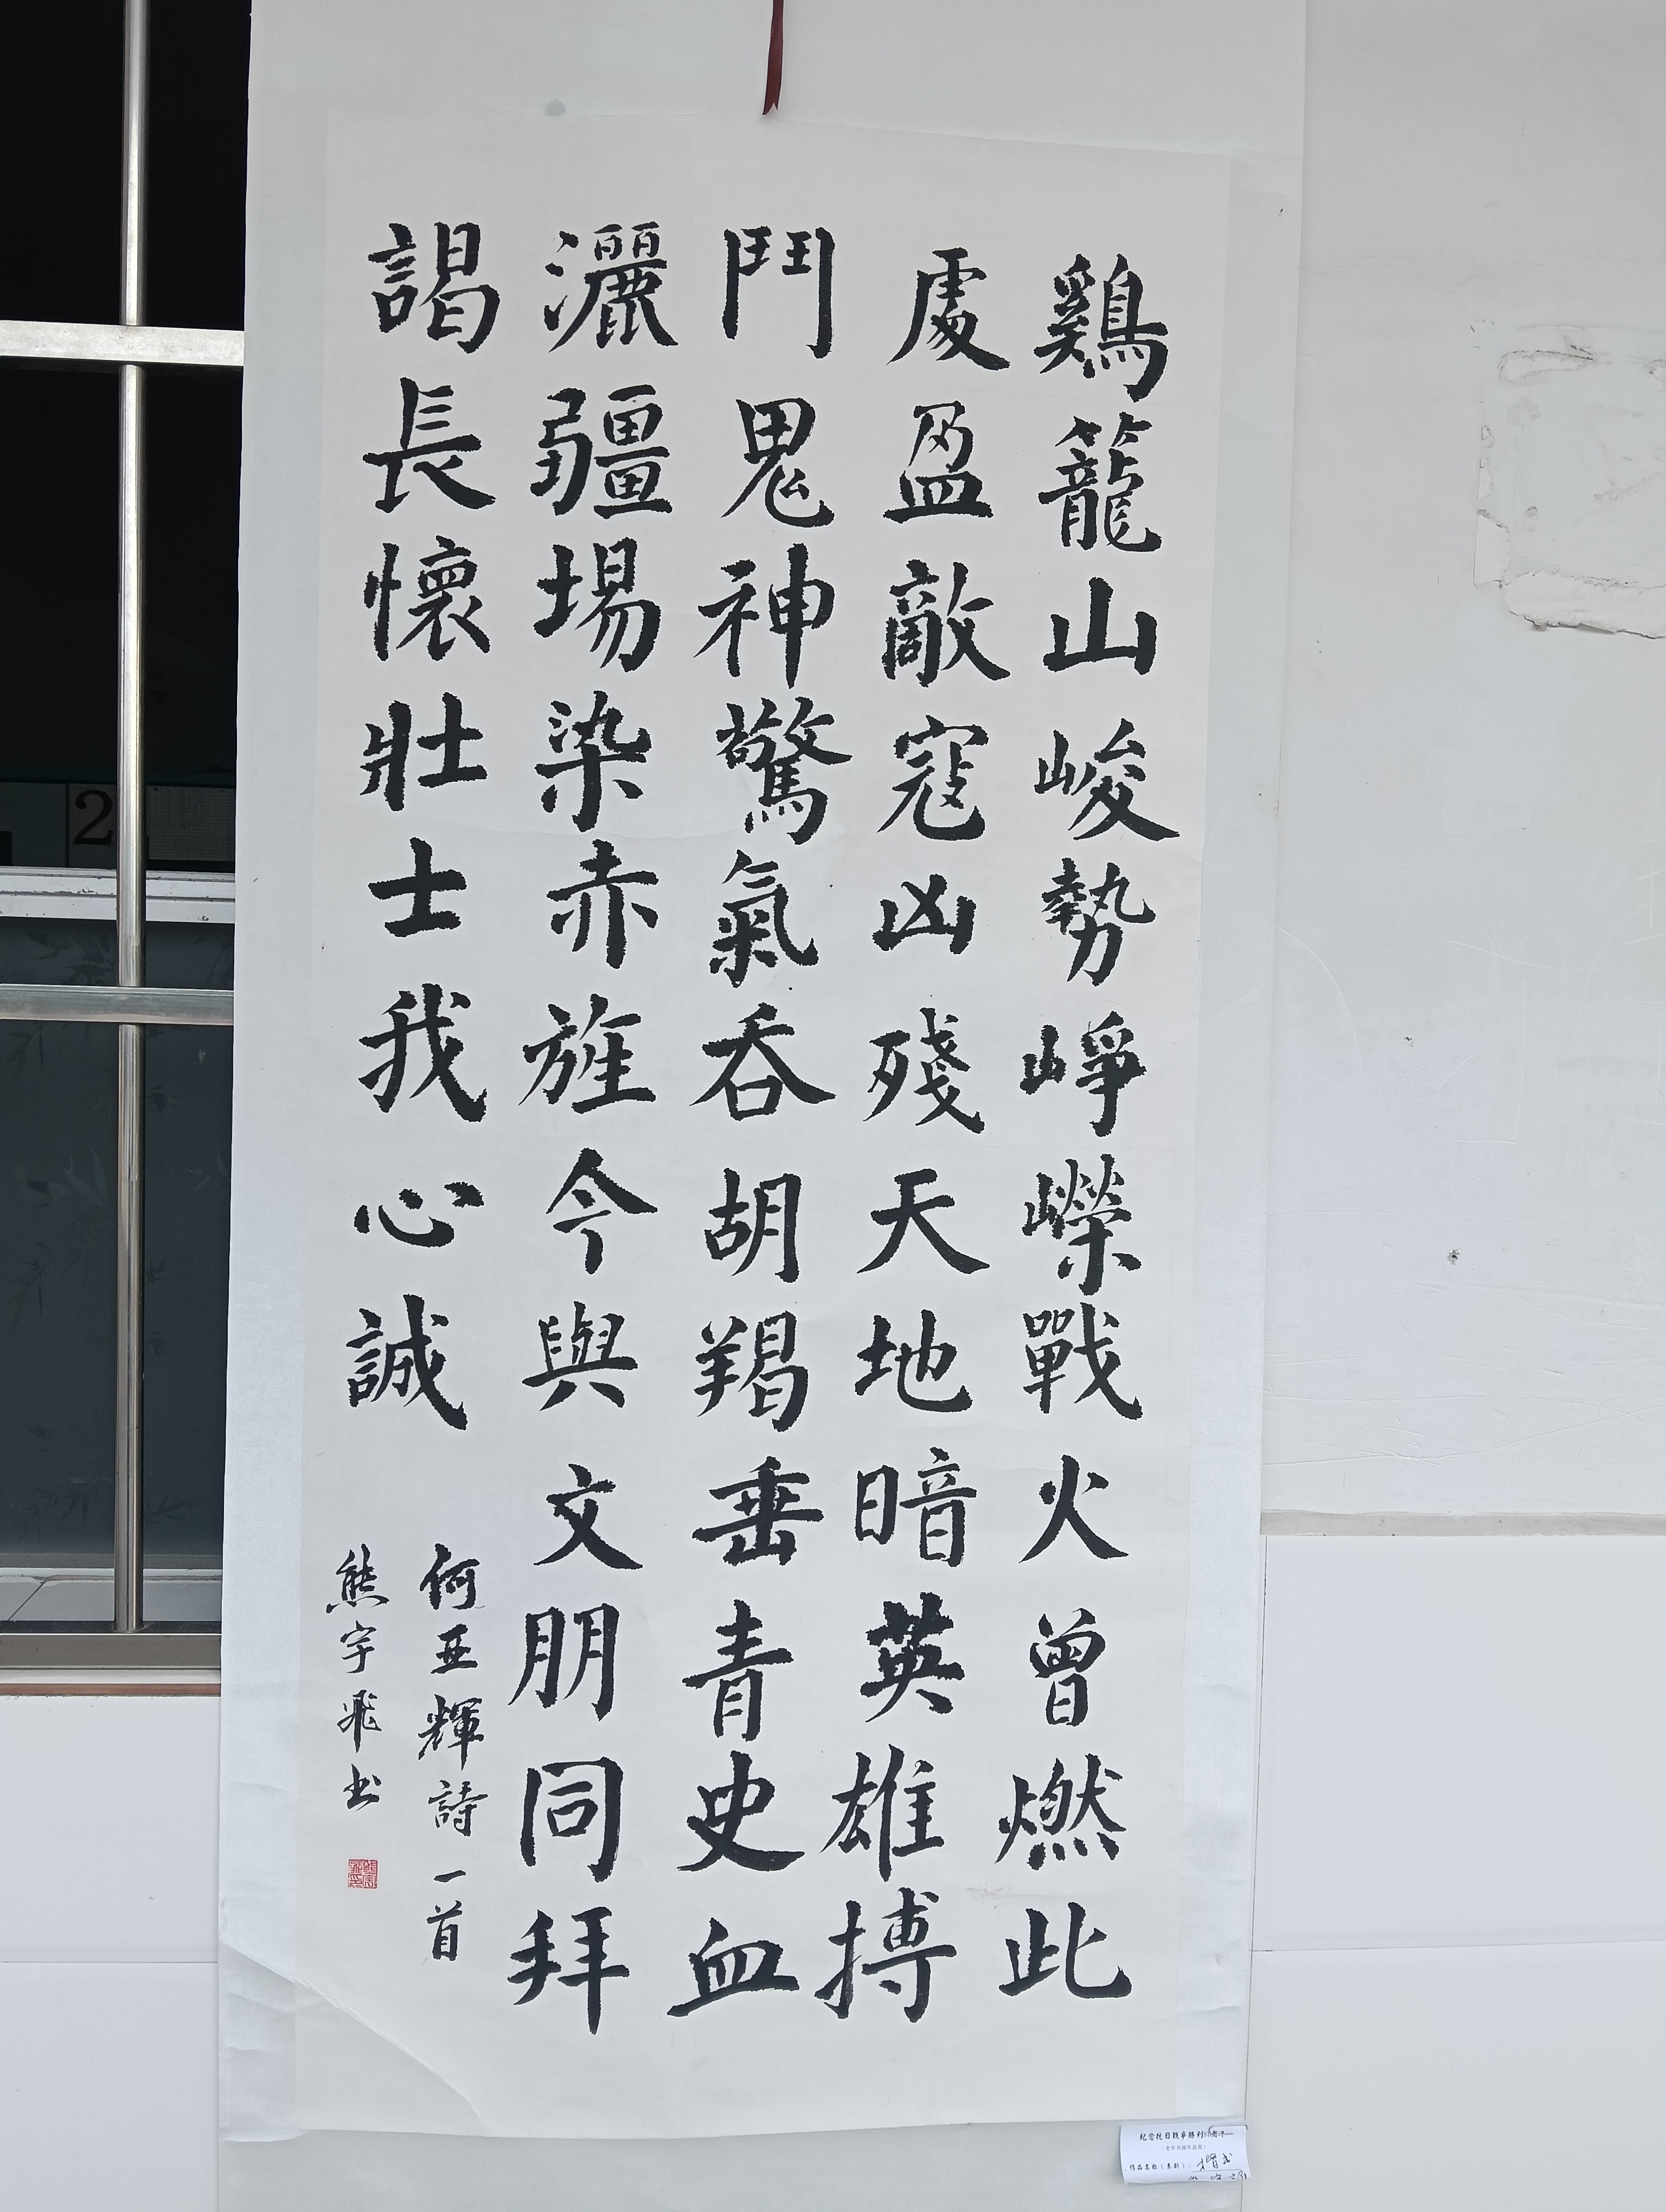 鷄籠山峻勢崢嶸戰火曾燃此
處盈敵寇凶殘天地暗英雄搏
鬥鬼神驚氣吞胡羯垂青史血
灑疆場染赤旌今與文朋同拜
謁長懷壯士我心誠
何亚輝詩一首
熊宇飛书
紀念抗日戰爭勝利80周年
2